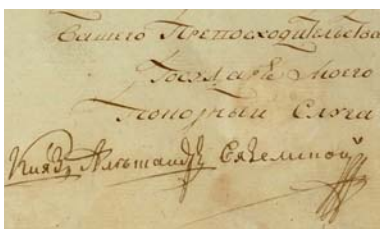 Вашего Превосходительства
Государя моего
Покорный слуга
Князь Александр Вяземской